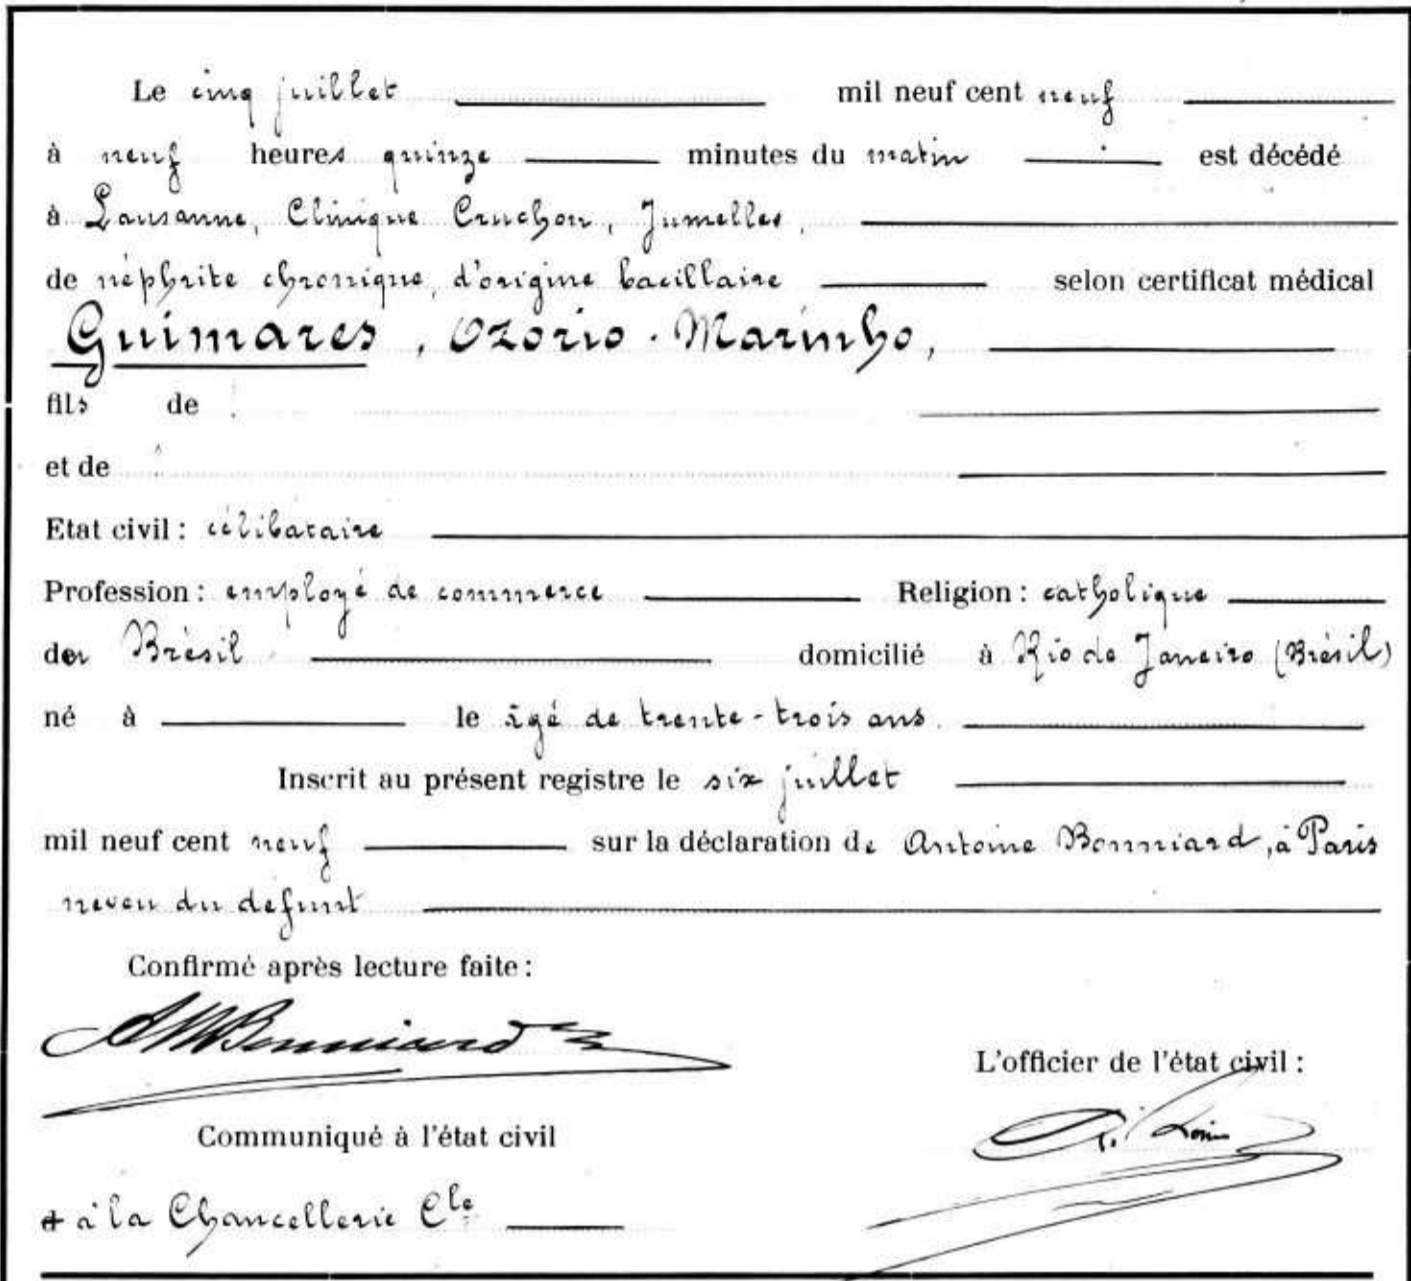 Le cinq juillet mil neuf cent neuf
à neuf heures quinze minutes du matin est décédé
à Lausanne, Clinique Cruchon, Jumelles,
de néphrite chronique, d'origine bacillaire selon certificat médical
Guimares, Ozorio-Marinho,
fils de
et de
Etat civil : célibataire
Profession : employé de commerce Religion : catholique
du Brésil domicilié à Rio de Janeiro (Brésil)
né à le âgé de trente-trois ans
Inscrit au présent registre le six juillet
mil neuf cent neuf sur la déclaration de Antoine Bonniard, à Paris
neveu du defunt
Confirmé après lecture faite :
L'officier de l'état civil :
Communiqué à l'état civil
à la Chancellerie Cle